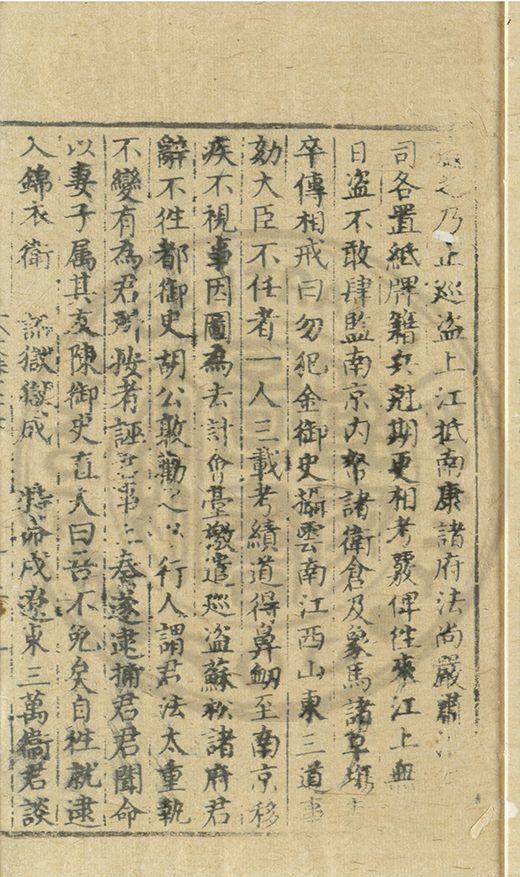 之乃止巡盜上江抵南康諸府法尚嚴肅
司各置紙牌籍兵尅期更相考覈俾往來江上無
日盜不敢肆監南京內帑諸衛倉及象馬諸草場
卒傳相戒曰勿犯金御史攝雲南江西山東三道事
劾大臣不任者一人三載考績道得鼻衂至南京移
疾不視事因圖為去計會臺檄遣巡盜蘇松諸府君
辭不往都御史胡公敦勸之以行人謂君法太重執
不變有為君所按者誣君事上奏遂逮捕君君聞命
以妻子属其友陳御史直夫曰吾不免矣自往就逮
入錦衣衛 詔獄獄成 特命戍遼東三萬衛君談